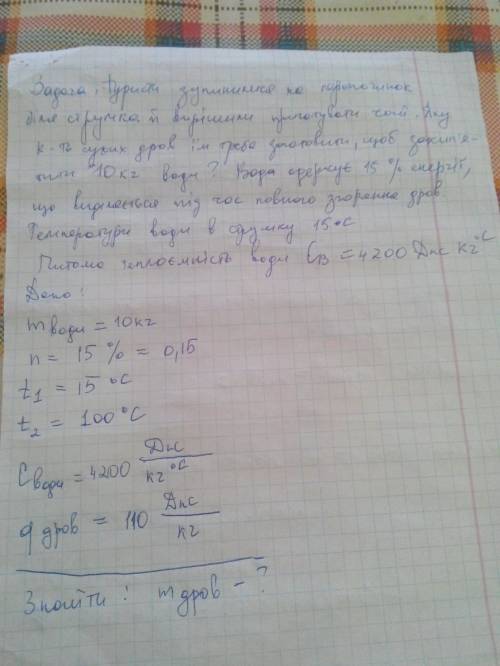 Задача. Туристи зупинилися на відпочинок
біля струмка й вирішили приготувати чай. Яку
к-ть сухих дров їм треба заготовити, щоб закип'я-
тили 10 кг води? Вода одержує 15 % енергії,
що виділяється під час повного згорання дров.
Температура води в струмку 15°С
Питома теплоємність води Cв = 4200 Дж кг°С
Дано:
m води = 10 кг
n = 15 % = 0,15
t1 = 15 °С
t2 = 100 °С
C води = 4200 Дж/кг °С
q дров = 110 Дж/кг
Знайти: m дров - ?